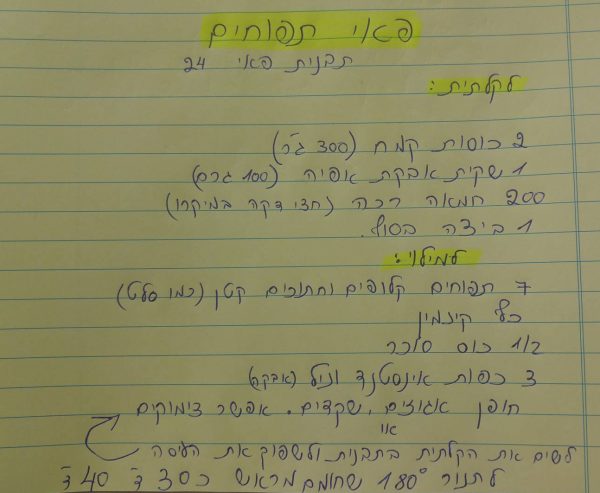 פאי תפוחים
תבנית פאי 24
לקלתית:
2 כוסות קמח (300 גר')
1 שקית אבקת אפיה (100 גרם)
200 חמאה רכה (חצי דקה במיקרו)
1 ביצה בסוף.
למילוי:
7 תפוחים קלופים וחתוכים קטן (כמו סלט)
כף קינמון
1/2 כוס סוכר
3 כפות אינסטנד וניל (אבקה)
חופן אגוזים, שקדים. אפשר צימוקים
או
לשים את הקלתית בתבנית ולשפוך את העיסה
לתנור 180° שחומם מראש כ30 ד' 40 ד'